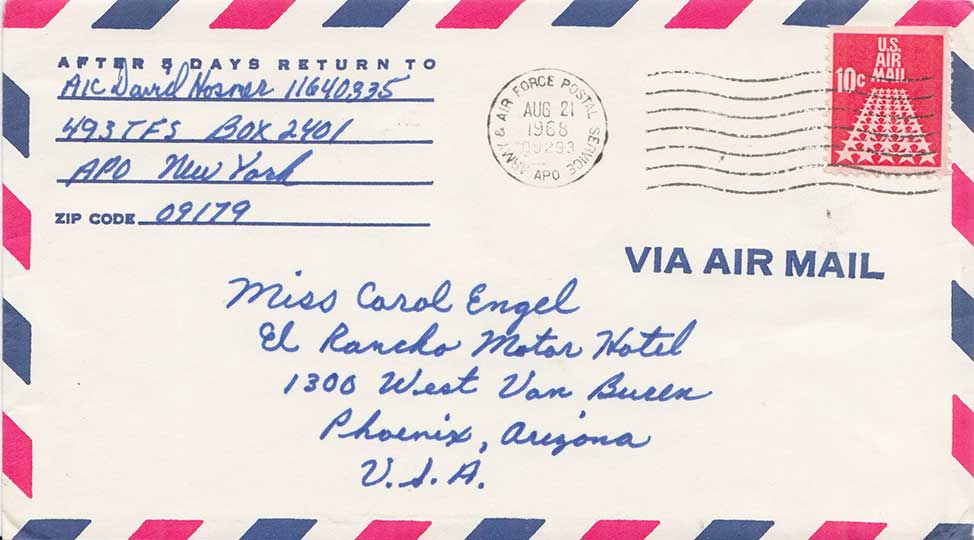 AFTER 5 DAYS RETURN TO
A1C David Hosmer 11640335
493 TFS Box 2401
APO New York
ZIP CODE 09179
ARMY & AIR FORCE POSTAL SERVICE
AUG 21
1968
09293
APO
U.S.
AIR
MAIL
10c
VIA AIR MAIL
Miss Carol Engel
El Rancho Motor Hotel
1300 West Van Buren
Phoenix, Arizona
U.S.A.